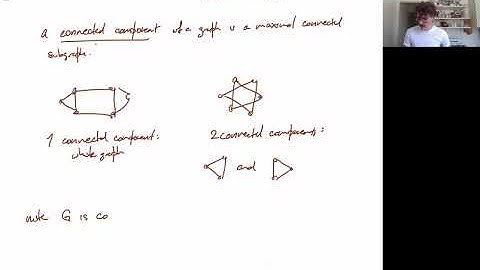 a connected component of a graph is a maximal connected
subgraph.
1 connected component:
whole graph
2 connected components:
and
note G is co